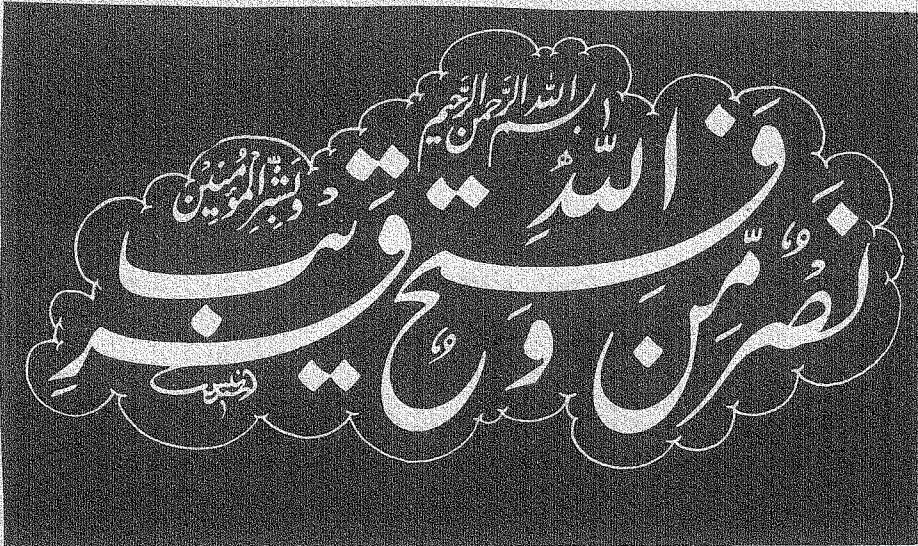 بسم الله الرحمن الرحيم
نَصْرٌ مِّنَ اللّٰهِ وَفَتْحٌ قَرِيْبٌ
وَبَشِّرِ الْمُؤْمِنِيْنَ